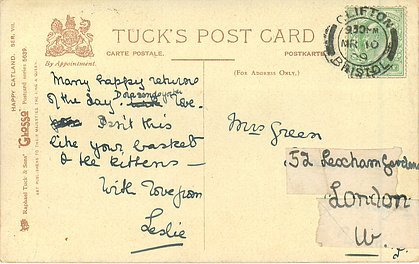 TUCK'S POST CARD
CARTE POSTALE.
POSTKARTE
By Appointment.
(FOR ADDRESS ONLY.)
HAPPY CATLAND. SER. VII.
"GLOSSO" Postcard series 9539.
Raphael Tuck & Sons'
ART PUBLISHERS TO THEIR MAJESTIES THE KING & QUEEN.
CLIFTON
9.30PM
MR 10
09
BRISTOL
Many happy returns
of the day
Isn't this
like your basket
& the kittens —
With love from
Leslie
Mrs Green
52 Lexham Gardens
London
W.